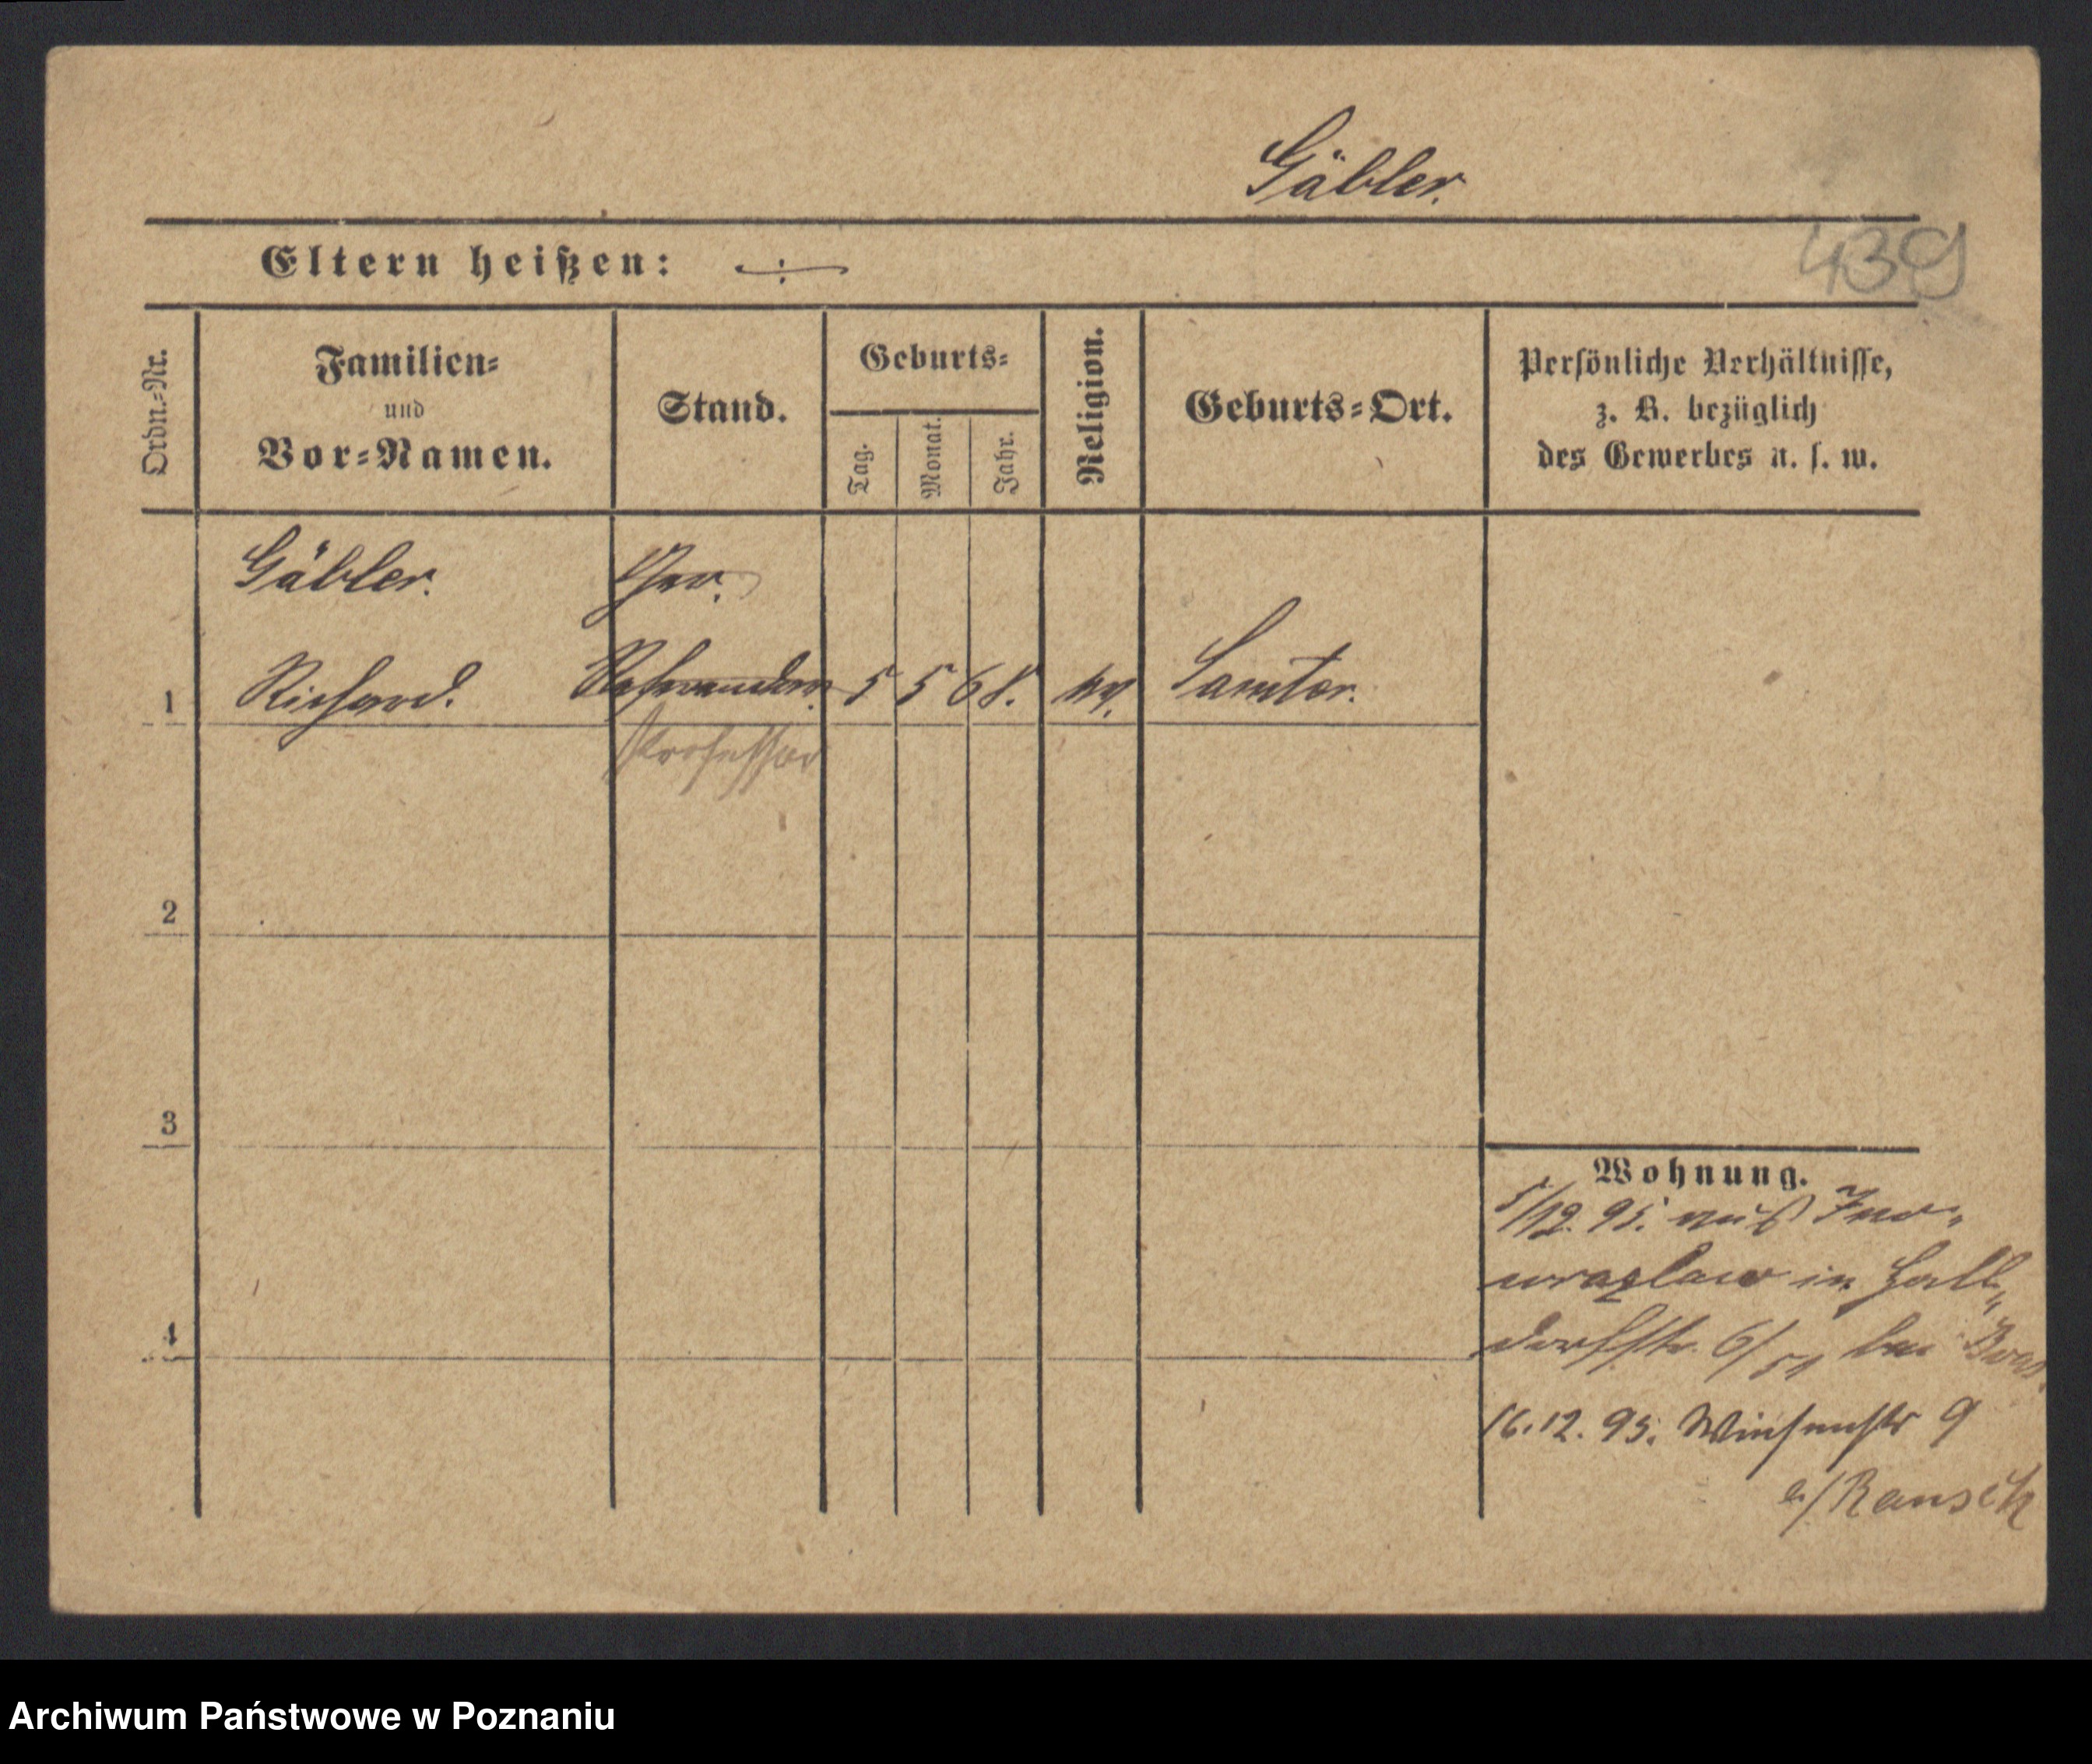 Gäbler.
Eltern heißen: ÷
439
Ordn.-Nr.
Familien-
und
Vor-Namen.
Stand.
Geburts-
Tag.
Monat.
Jahr.
Religion.
Geburts-Ort.
Persönliche Verhältnisse,
z. B. bezüglich
des Gewerbes u. s. w.
Gäbler.
1 Richard. 5 5 68. ev. Samter.
Professor
2
3
4
Wohnung.
5/12. 95. aus Ino-
wrazlaw in Halb-
dorfstr. 6/51 bei
16.12.95. Wiesenstr 9
b/Rausch
Archiwum Państwowe w Poznaniu